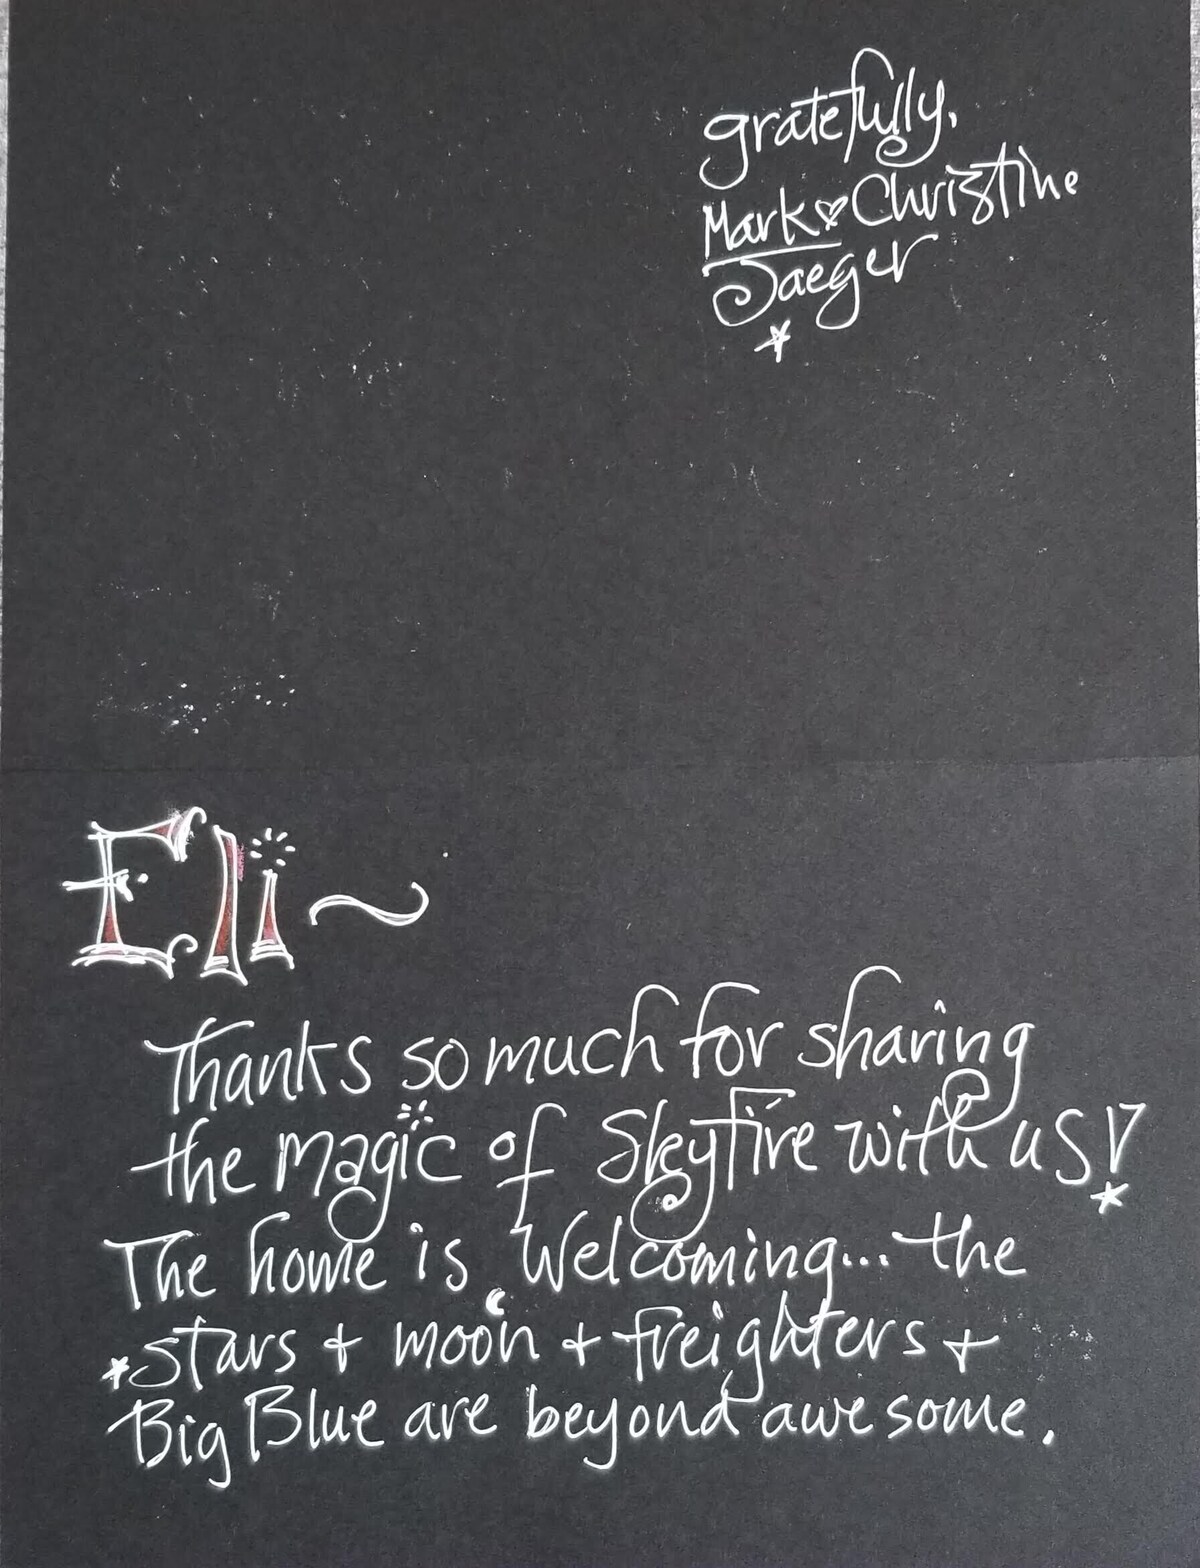 gratefully,
Mark♡Christine
Jaeger
Eli~
Thanks so much for sharing
the magic of Skyfire with us!
The home is welcoming... the
stars + moon + freighters +
Big Blue are beyond awesome.